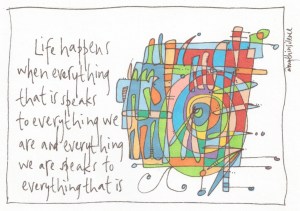 Life happens
when everything
that is speaks
to everything we
are and everything
we are speaks to
everything that is